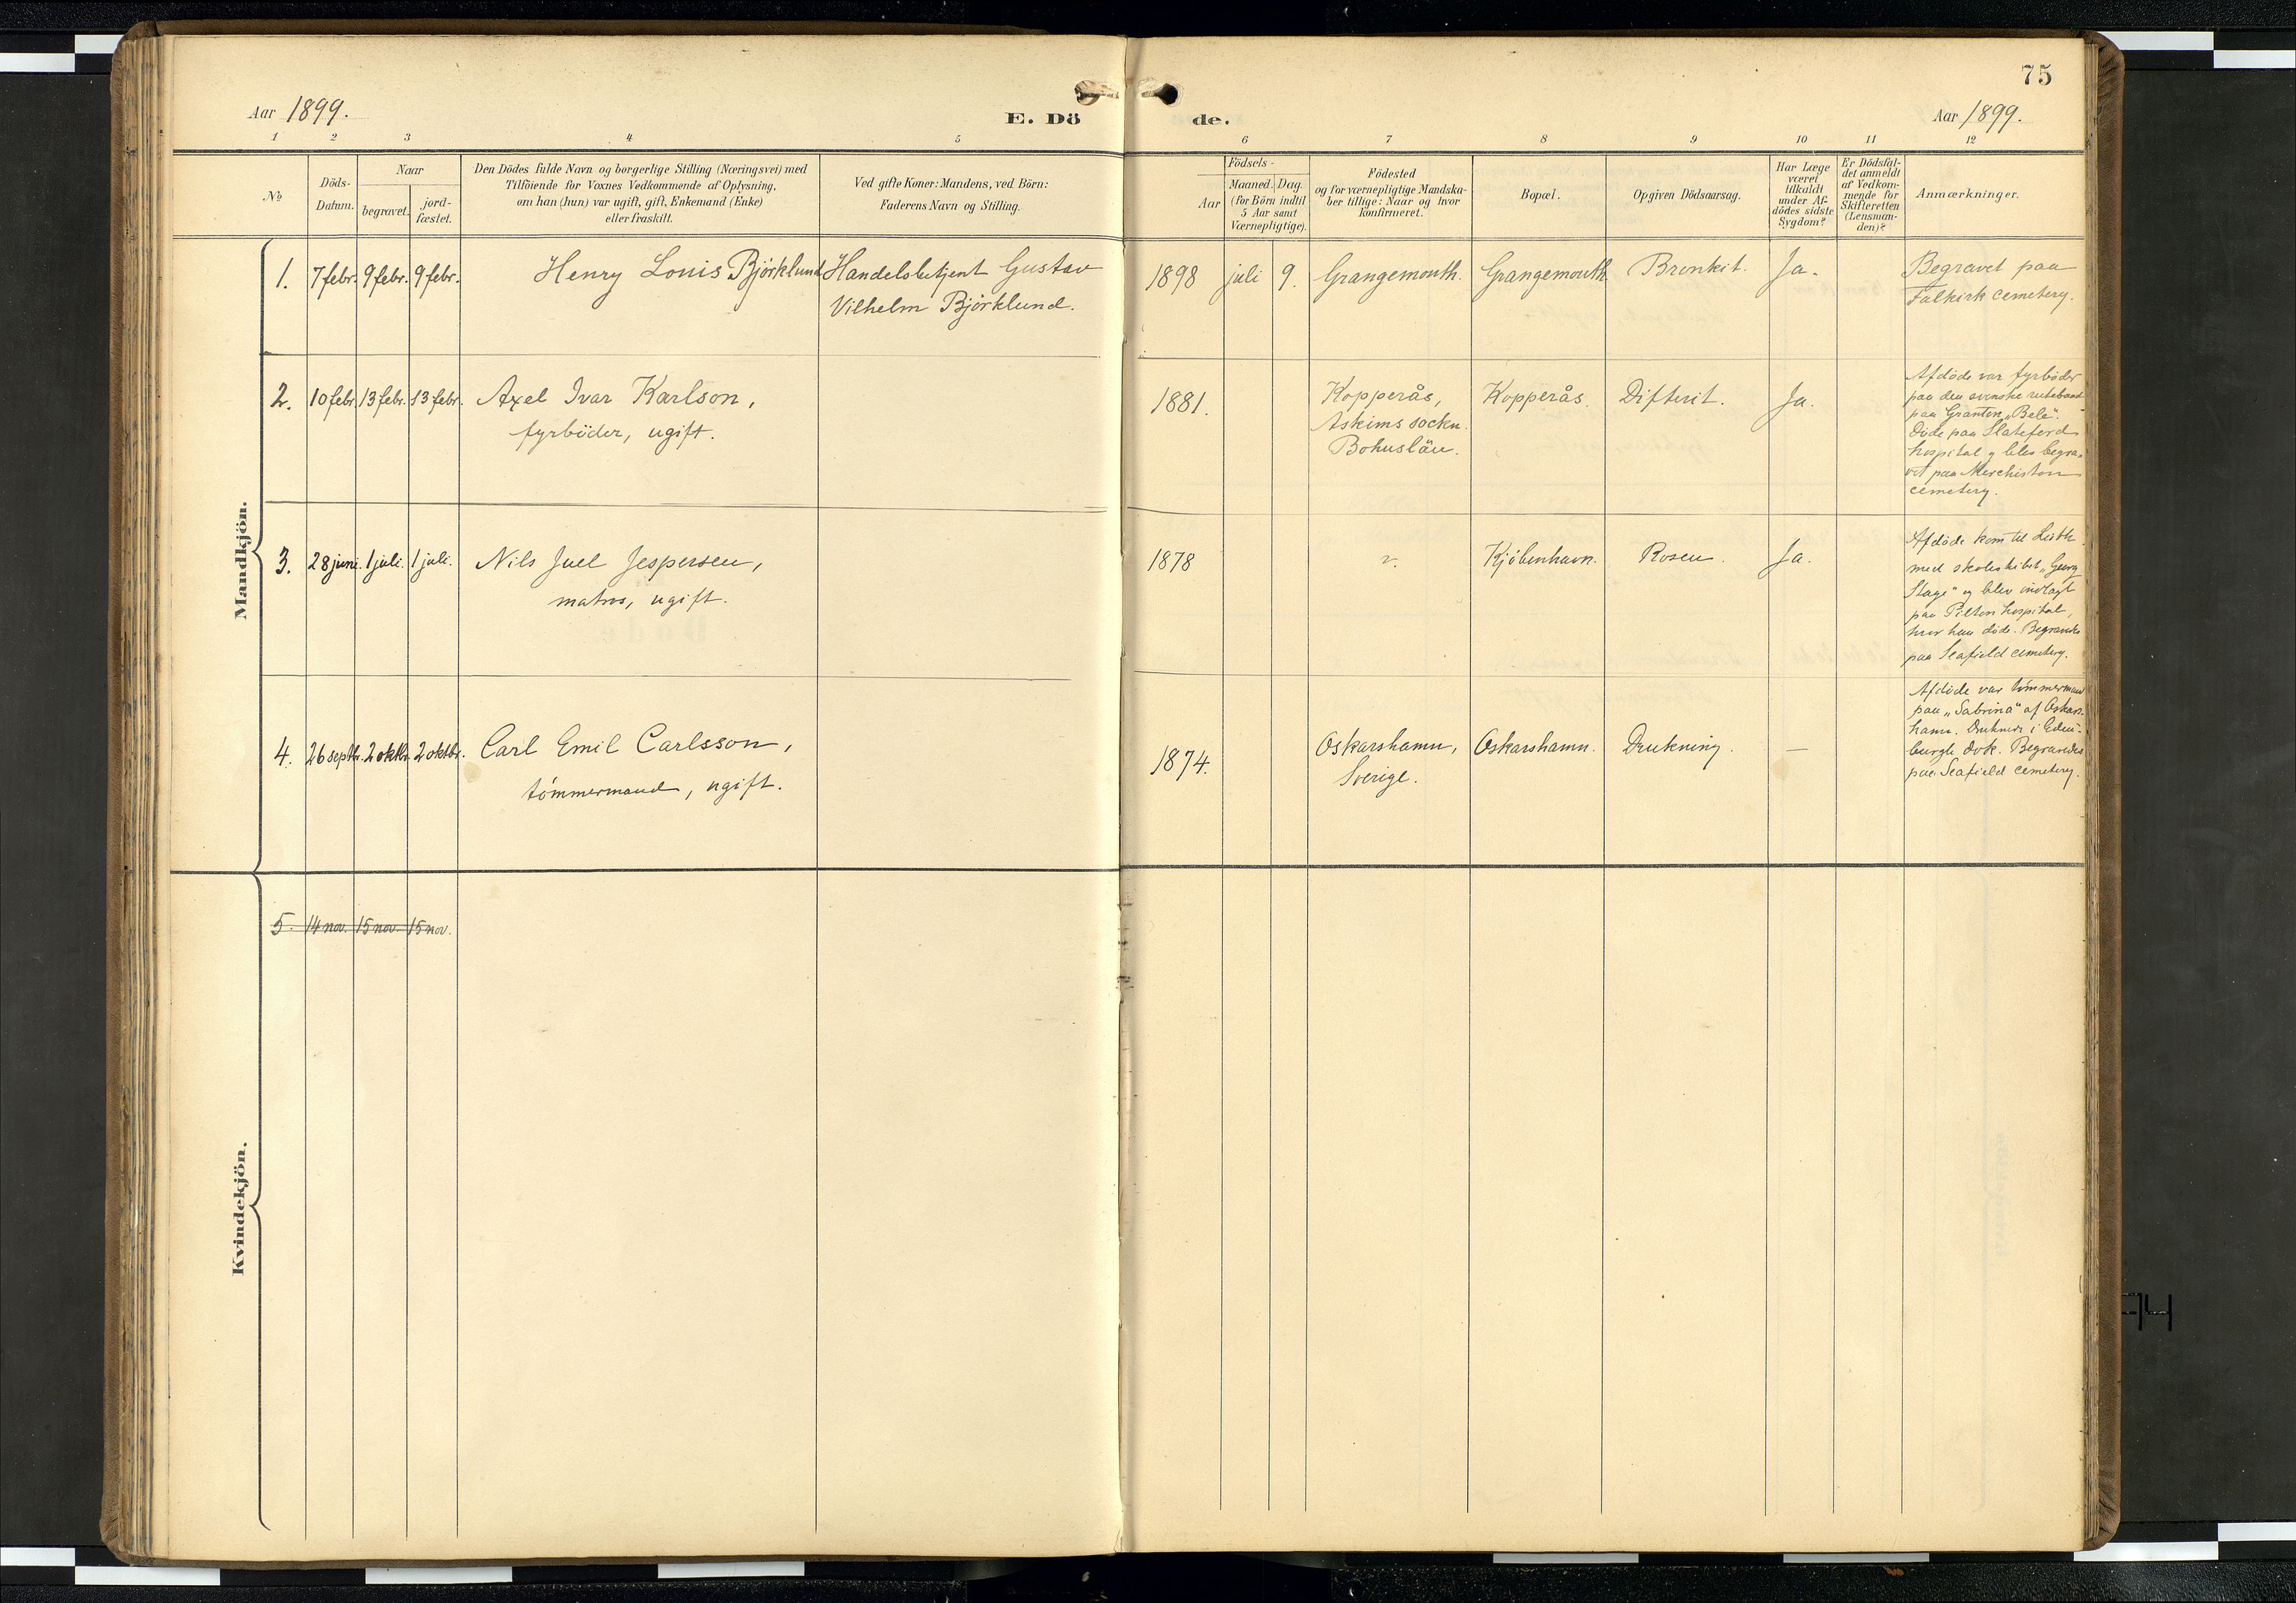 75
Aar 1899.
E. Dö
de.
Aar 1899.
1 2 3 4 5 6 7 8 9 10 11 12
No
Döds-
Datum.
Naar
begravet.
jord-
fæstet.
Den Dödes fulde Navn og borgerlige Stilling (Næringsvei) med
Tilföiende for Voxnes Vedkommende af Oplysning,
om han (hun) var ugift, gift, Enkemand (Enke)
eller fraskilt.
Ved gifte Koner: Mandens, ved Börn:
Faderens Navn og Stilling.
Födsels-
Aar
Maaned. Dag.
(for Börn indtil
5 Aar samt
Værnepligtige).
Födested
og for værnepligtige Mandska-
ber tillige: Naar og hvor
konfirmeret.
Bopæl.
Opgiven Dödsaarsag.
Har Læge
været
tilkaldt
under Af-
dödes sidste
Sygdom?
Er Dödsfal-
det anmeldt
af Vedkom-
mende for
Skifteretten
(Lensman-
den)?
Anmærkninger.
Mandkjön.
1. 7 febr. 9 febr. 9 febr.
Henry Louis Björklund
Handelsbetjent Gustav
Vilhelm Björklund.
1898 juli 9.
Grangemouth.
Grangemouth.
Bronkit.
Ja.
Begravet paa
Falkirk cemetery.
2. 10 febr. 13 febr. 13 febr.
Axel Ivar Karlson,
fyrböder, ugift.
1881.
Kopperås,
Askims sockn.
Bohuslän.
Kopperås.
Difterit.
Ja.
Afdöde var fyrböder
paa den svenske rutebaad
paa Granton, „Bele".
Döde paa Slateford
hospital og blev begra-
vet paa Merchiston
cemetery.
3. 28 juni. 1 juli. 1 juli.
Nils Juel Jespersen,
matros, ugift.
1878
Kjöbenhavn.
Rosen.
Ja.
Afdöde kom til Leith
med skoleskibet „Georg
Stage" og blev indlagt
paa Pilton hospital,
hvor han döde. Begravedes
paa Seafield cemetery.
4. 26 septbr. 2 oktbr. 2 oktbr.
Carl Emil Carlsson,
tömmermand, ugift.
1874.
Oskarshamn,
Sverige.
Oskarshamn.
Drukning.
—
Afdöde var tömmermand
paa „Sabrina" af Oskars-
hamn. Druknede i Edin-
burgh dok. Begravedes
paa Seafield cemetery.
Kvindekjön.
5. 14 nov. 15 nov. 15 nov.